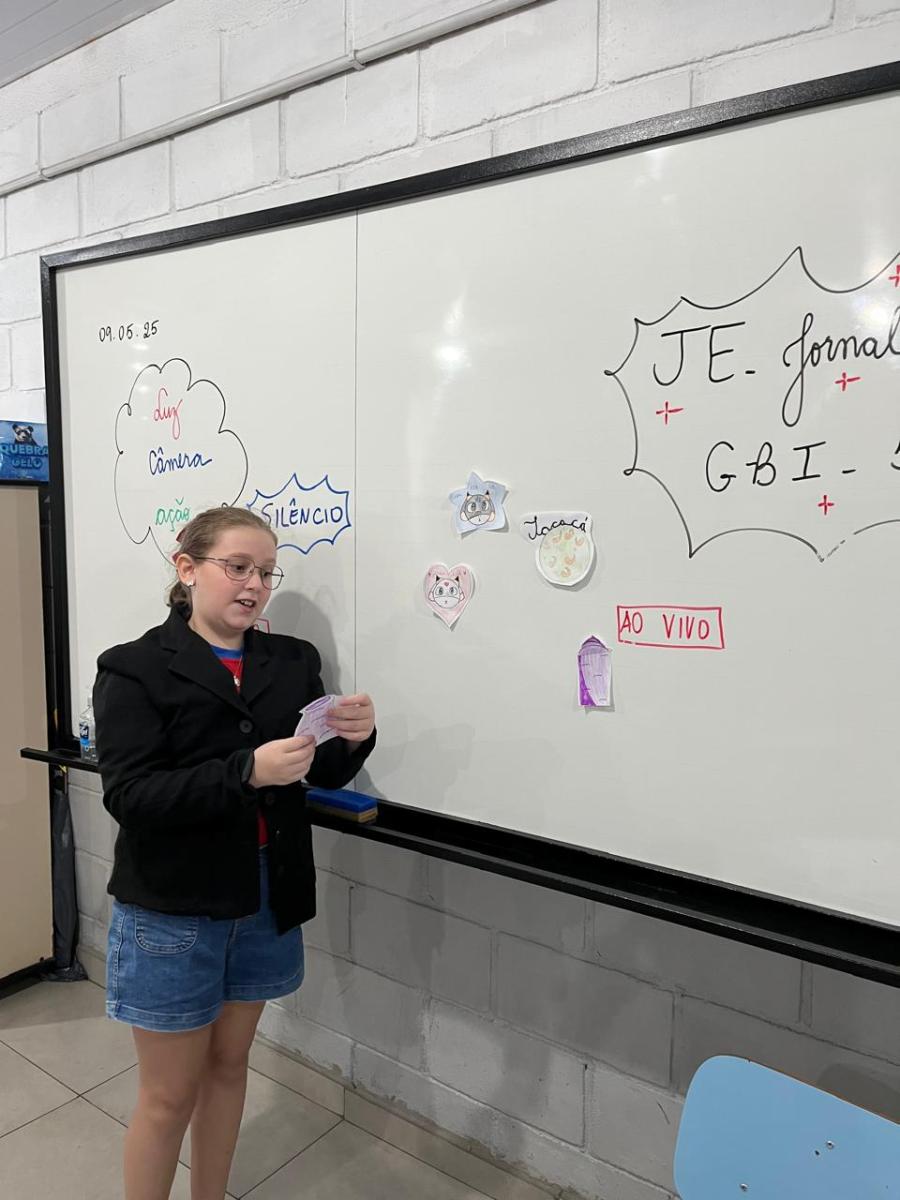 09.05.25
Luz
Câmera
ação
SILÊNCIO
QUEBRA
GELO
Tacacá
AO VIVO
JE- Jornal
GBI-